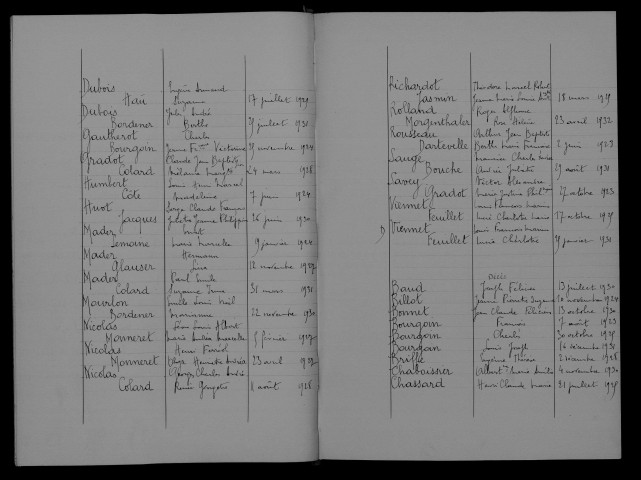 Dubois Eugène Armand
Haü Suzanne 17 juillet 1929
Dubois Jules André
Bordener Berthe 29 juillet 1930
Gautherot Charles
Bourgoin Jeanne Victorine 29 novembre 1924
Gradot Claude Jean Baptiste
Colard Mélanie 24 mars 1928
Humbert Louis Henri Marcel
Côte Madeleine 7 juin 1924
Huot Serge Claude François
Jacques Juliette Jeanne Philippine 26 juin 1930
Mader Ernest
Lemoine Marie Marcelle 19 janvier
Mader Hermann
Glauser Lina 12 novembre
Mader Paul Emile
Colard Suzanne Irma 31 mars 1931
Mourlon Emile Louis Noël
Bordener 22 novembre 1930
Nicolas Léon Louis Albert
Monneret Marie 5 février
Nicolas Henri
Monneret 23 avril
Nicolas Georges Charles André
Colard Renée 2 août 1926
Richardot Théodore Marcel Robert
Jasmin Jeanne Marie Louise 18 mars 1929
Rolland Roger
Morgenthaler Rose Hélène 23 avril 1932
Rousseau Arthur Jean Baptiste
Dartevelle Berthe Marie 2 juin 1923
Sauge Maurice Charles
Bouche Andrée Juliette 29 août 1931
Savey Victor Alexandre
Gradot Marie 27 octobre 1923
Viennet Louis François Marius
Feuillet Marie Charlotte 17 octobre 1925
Viennet Louis François
Feuillet Marie Charlotte 29 janvier 1931
Décès
Baud Joseph Félicien 13 juillet 1930
Billot Jeanne 20 novembre 1924
Bonnet Jean Claude 13 octobre 1930
Bourgoin François 7 août 1923
Bourgoin Charles 30 octobre 1925
Bourgoin Louis Joseph 16 décembre 1930
Briffe Eugénie 2 décembre 1928
Chaboissier Albert Marie Emile 4 novembre 1930
Chassard Henri Claude Marie 21 juillet 1925